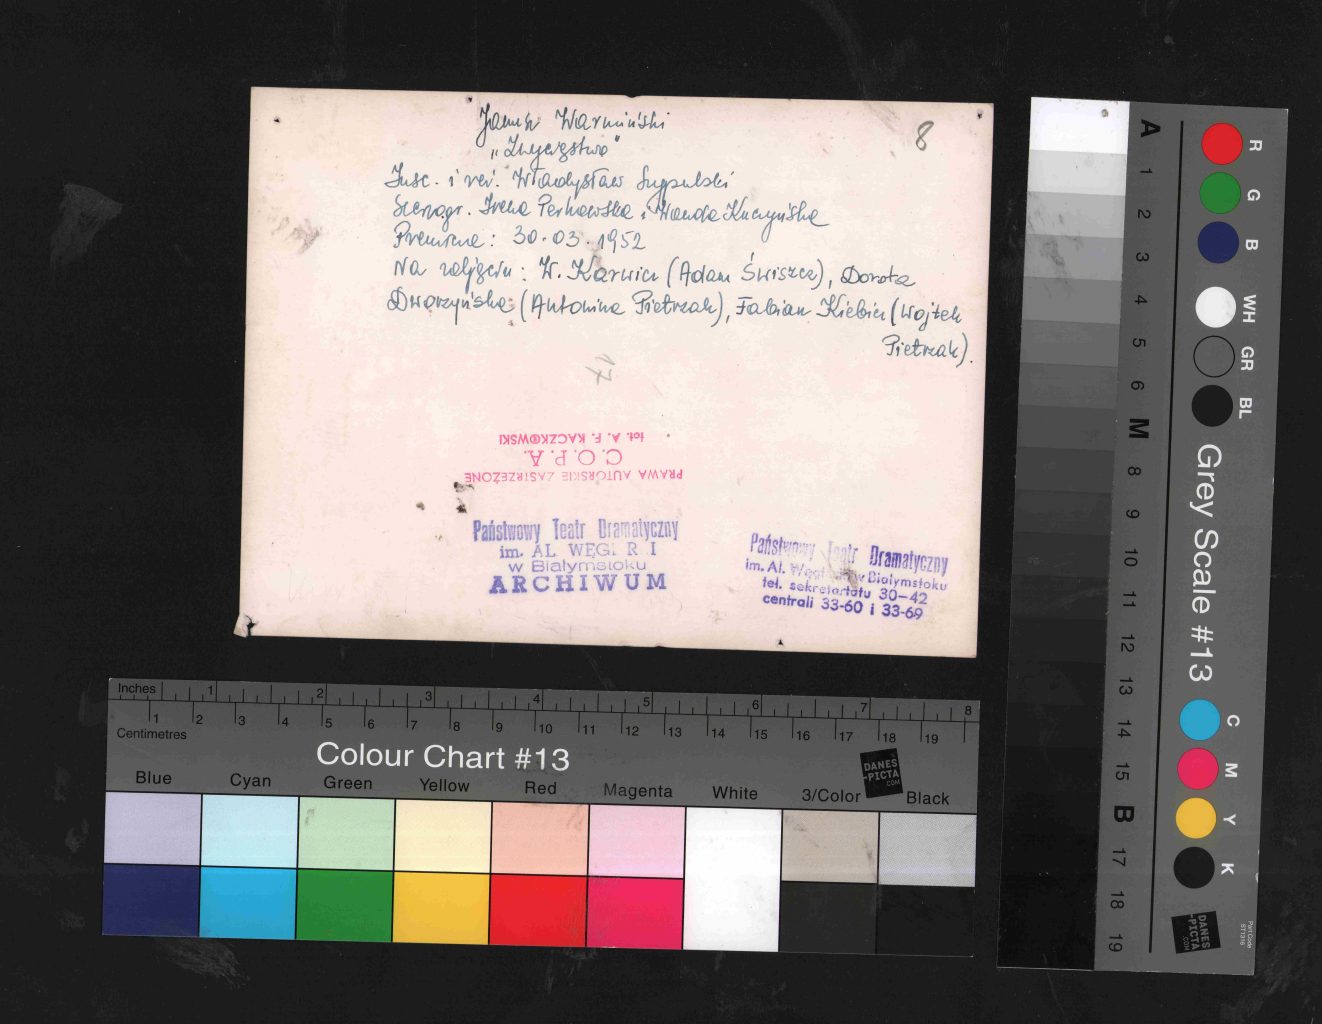 8
Janusz Warmiński
„Zwycięstwo"
Insc. i reż. Władysław Szypulski
Scenogr. Irena Perkowska i Wanda Kuczyńska
Premiera: 30.03.1952
Na zdjęciu: W. Karwicz (Adam Świszcz), Dorota
Dworzyńska (Antonina Pietrzak), Fabian Kiebicz (Wojtek
Pietrzak).
17
PRAWA AUTORSKIE ZASTRZEŻONE
C.O.P.A.
fot. A. F. KACZKOWSKI
Państwowy Teatr Dramatyczny
im. AL. WĘGI R I
w Białymstoku
ARCHIWUM
Państwowy Teatr Dramatyczny
im. Al. w Białymstoku
tel. sekretariatu 30-42
centrali 33-60 i 33-69
Inches 1 2 3 4 5 6 7 8
1 2 3 4 5 6 7 8 9 10 11 12 13 14 15 16 17 18 19
Centimetres
Colour Chart #13
DANES
-PICTA
.COM
Blue Cyan Green Yellow Red Magenta White 3/Color Black
A 1 2 3 4 5 6 M 8 9 10 11 12 13 14 15 B 17 18 19
R G B WH GR BL
Grey Scale #13
C M Y K
DANES
-PICTA
.COM
Part Code
ST1316